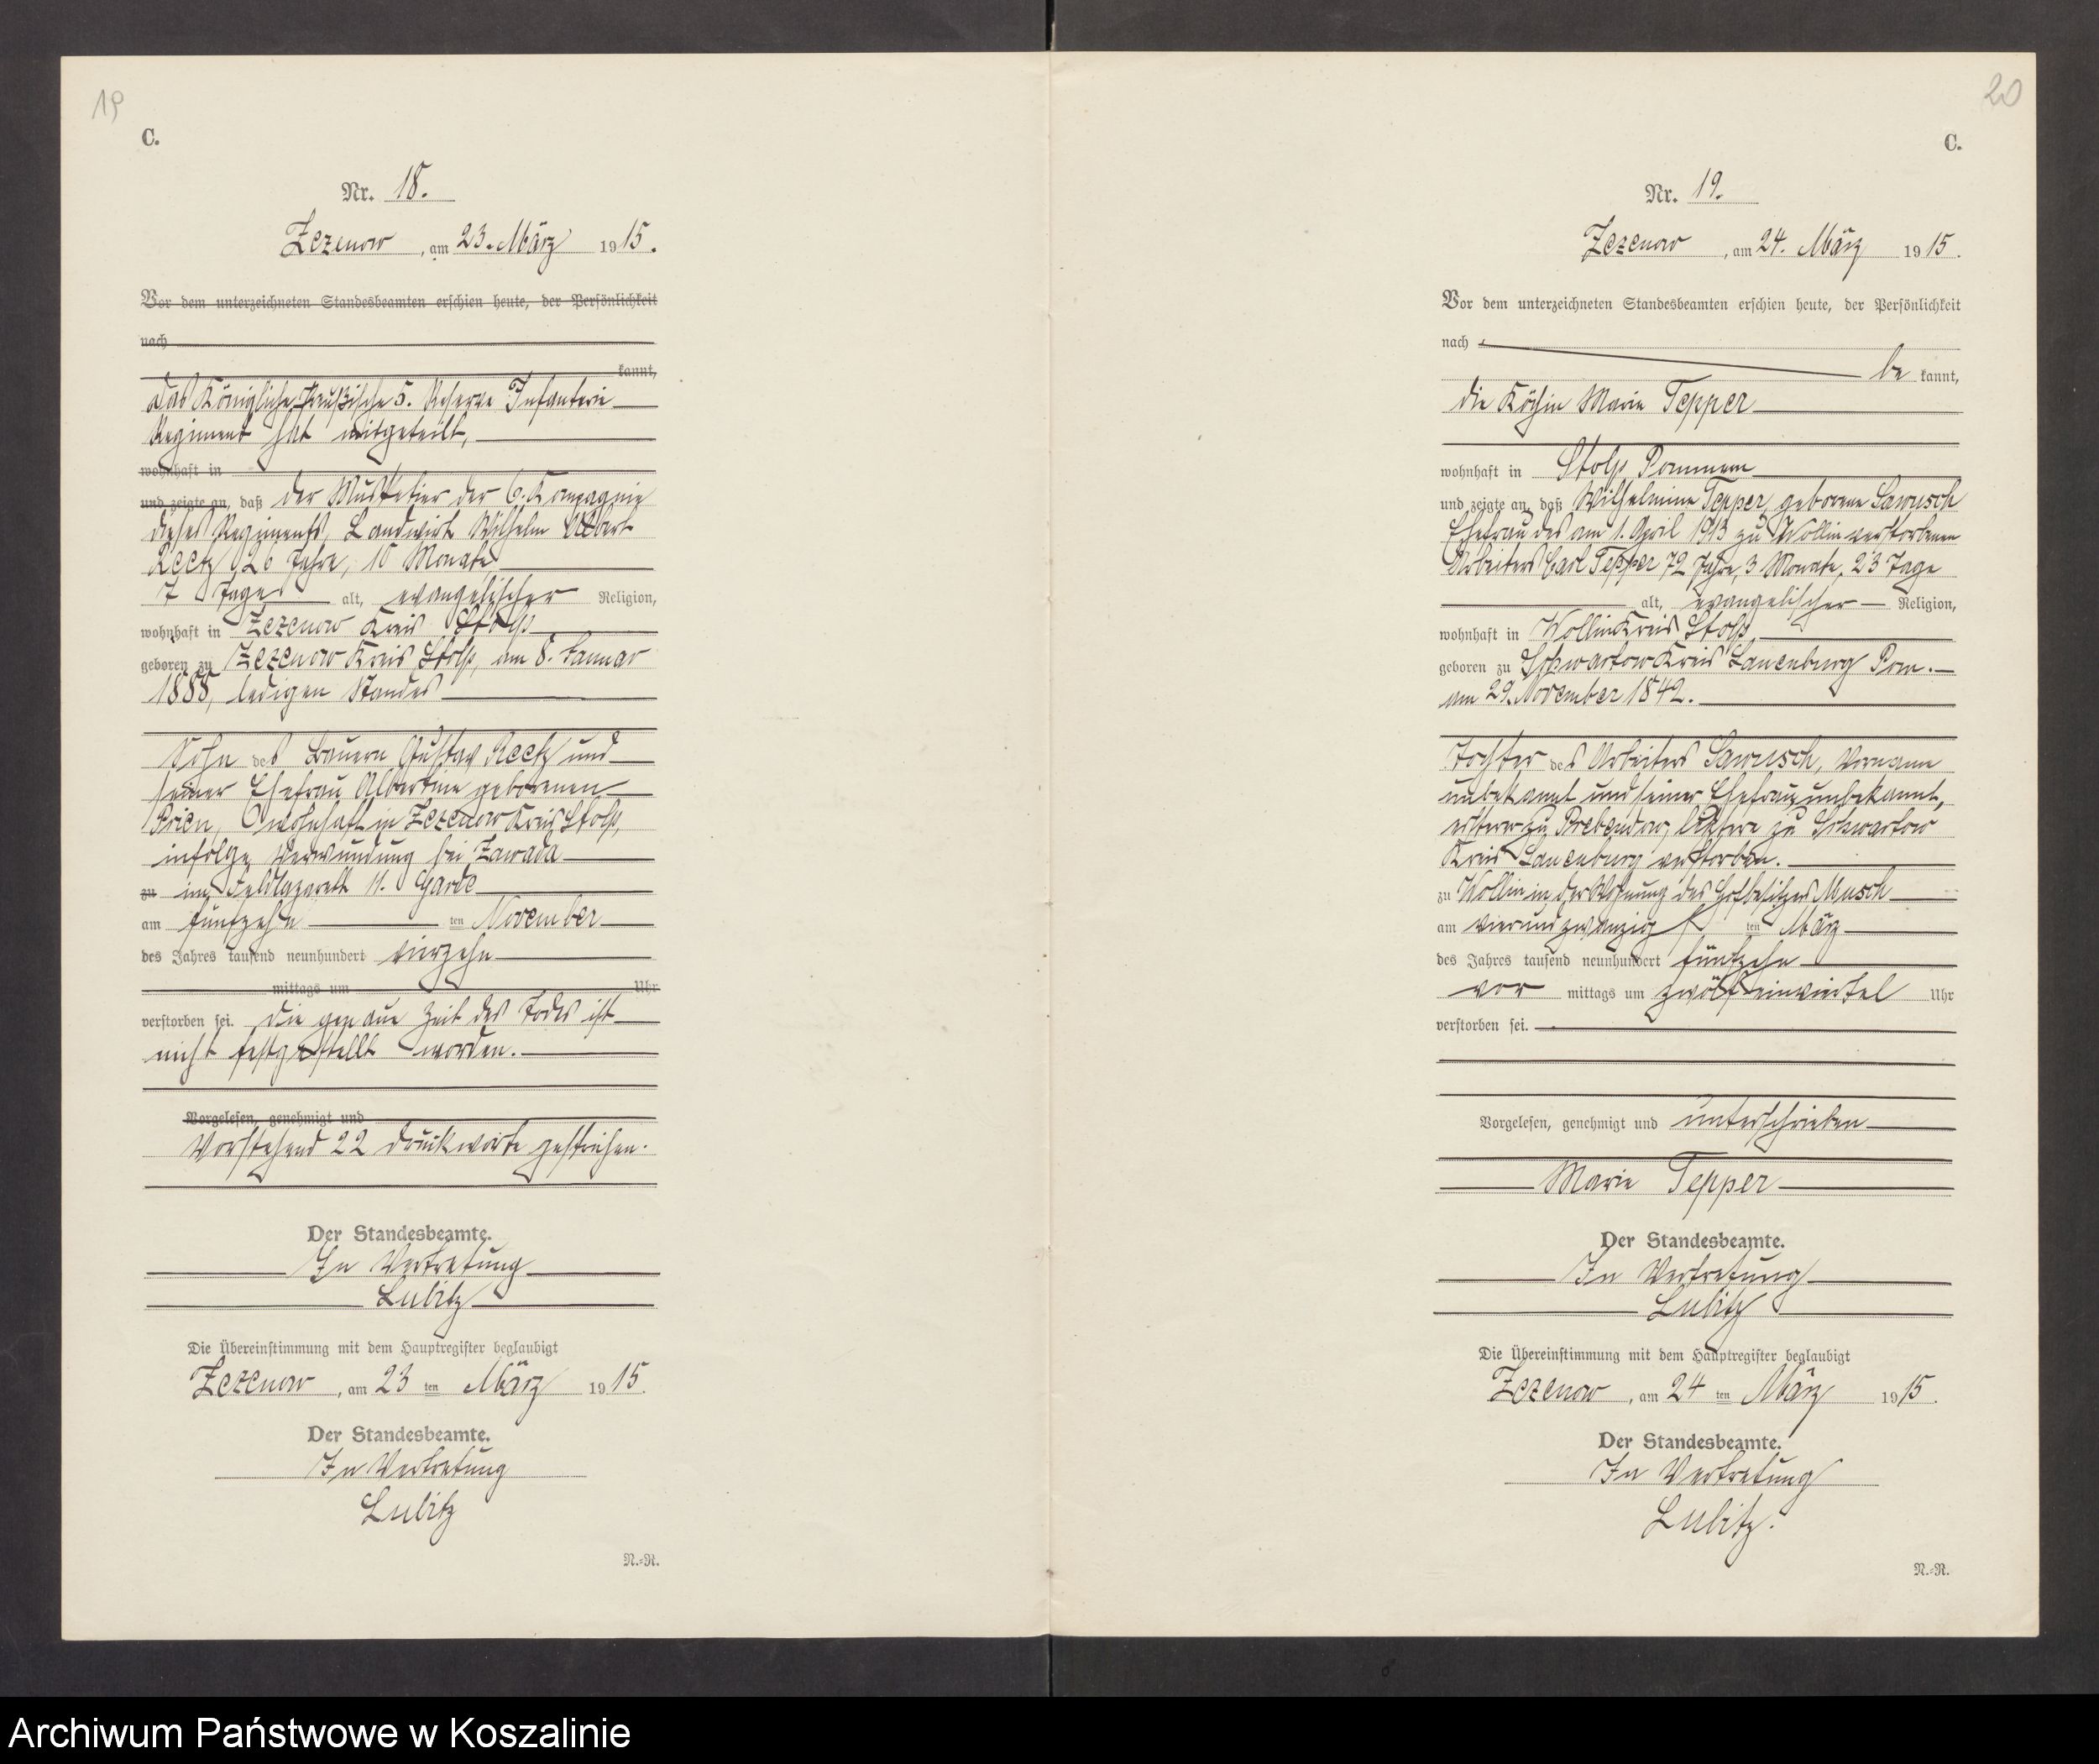 19
C.
Nr. 18.
Zezenow, am 23. März 1915.
Vor dem unterzeichneten Standesbeamten erschien heute, der Persönlichkeit
nach
kannt,
das Königliche Preußische 5. Reserve Infanterie
Regiment hat mitgeteilt,
wohnhaft in
und zeigte an, daß der Musketier der 6. Kompagnie
dieses Regiments, Landwirt Wilhelm Albert
Reetz, 26 Jahre, 10 Monate
7 Tage alt, evangelischer Religion,
wohnhaft in Zezenow Kreis Stolp
geboren zu Zezenow Kreis Stolp, am 8. Januar
1888, ledigen Standes
Sohn des Bauern Gustav Reetz und
seiner Ehefrau Albertine geborenen
Prien, wohnhaft in Zezenow Kreis Stolp,
infolge Verwundung bei Zawada
zu im Feldlazarett 11. Garde
am fünfzehn ten November
des Jahres tausend neunhundert vierzehn
mittags um Uhr
verstorben sei. Die genaue Zeit des Todes ist
nicht festgestellt worden.
Vorgelesen, genehmigt und
Vorstehend 22 Druckworte gestrichen.
Der Standesbeamte.
In Vertretung
Lubitz
Die Übereinstimmung mit dem Hauptregister beglaubigt
Zezenow, am 23 ten März 1915.
Der Standesbeamte.
In Vertretung
Lubitz
N.-R.
20
C.
Nr. 19.
Zezenow, am 24. März 1915.
Vor dem unterzeichneten Standesbeamten erschien heute, der Persönlichkeit
nach
be kannt,
die Köchin Marie Tepper
wohnhaft in Stolp Pommern
und zeigte an, daß Wilhelmine Tepper, geborene Sawusch
Ehefrau des am 1. April 1913 zu Wollin verstorbenen
Arbeiters Carl Tepper 72 Jahre, 3 Monate, 23 Tage
alt, evangelischer Religion,
wohnhaft in Wollin Kreis Stolp,
geboren zu Schwartow Kreis Lauenburg Pom.
am 29. November 1842.
Tochter des Arbeiters Sawusch, Vorname
unbekannt und seiner Ehefrau unbekannt,
ersterer zu Prebendow, letztere zu Schwartow
Kreis Lauenburg verstorben.
zu Wollin in der Wohnung des Hofbesitzers Musch
am vierundzwanzig ten März
des Jahres tausend neunhundert fünfzehn
vor mittags um zwölfeinviertel Uhr
verstorben sei.
Vorgelesen, genehmigt und unterschrieben
Marie Tepper
Der Standesbeamte.
In Vertretung
Lubitz
Die Übereinstimmung mit dem Hauptregister beglaubigt
Zezenow, am 24 ten März 1915.
Der Standesbeamte.
In Vertretung
Lubitz.
N.-R.
Archiwum Państwowe w Koszalinie